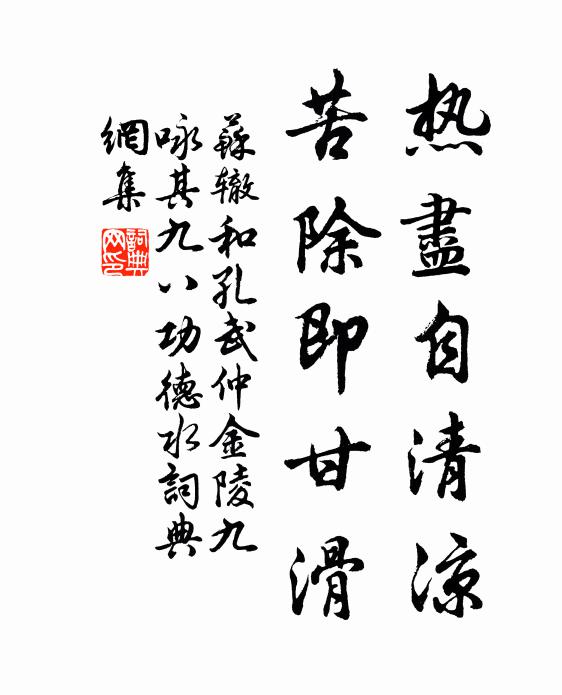 热盡自清凉
苦除即甘滑
蘇辙和孔武仲金陵九
咏其九八功德水詞典
網集
詞典
网印